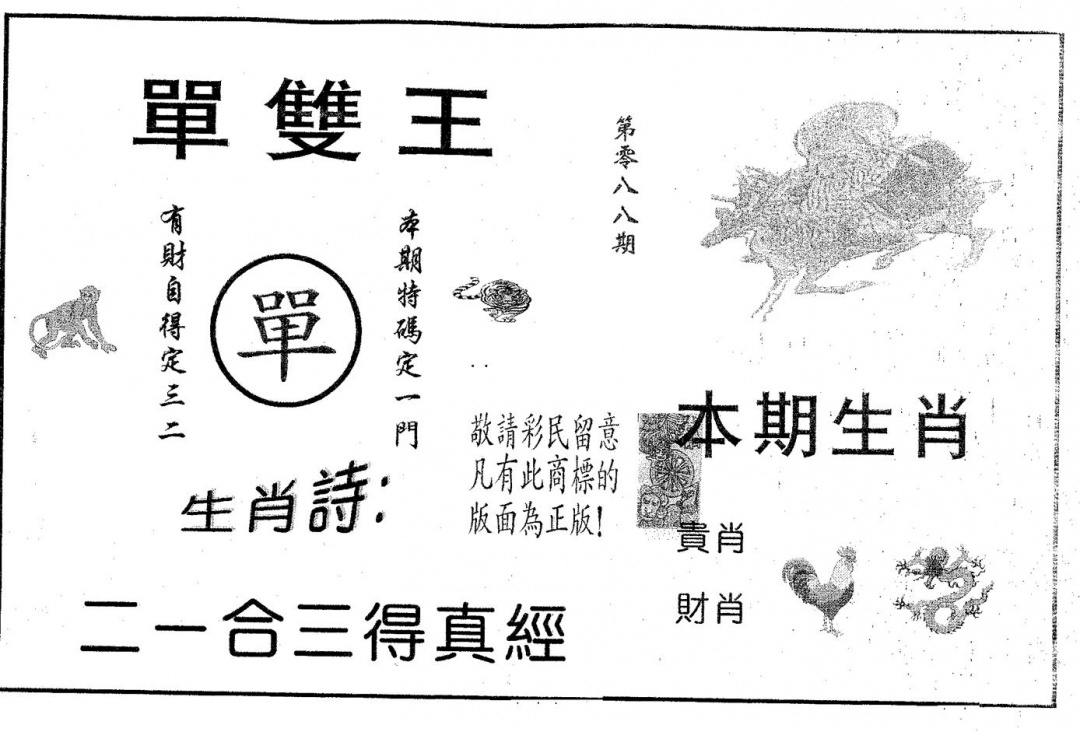 單雙王
第零八八期
本期特碼定一門
單
有財自得定三二
敬請彩民留意
凡有此商標的
版面為正版!
生肖詩:
二一合三得真經
本期生肖
貴肖
財肖